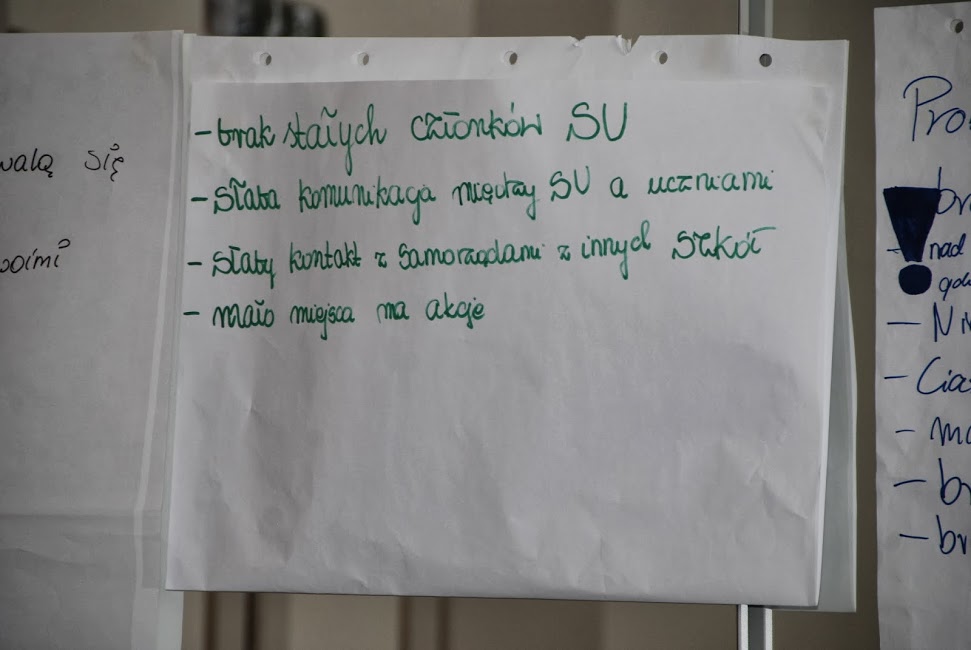 walą się
poimi
- brak stałych członków SU
- słaba komunikacja między SU a uczniami
- słaby kontakt z samorządami z innych szkół
- mało miejsca na akcje
Pro
br
- nad
— Ni
- Cia
- ma
- br
- br